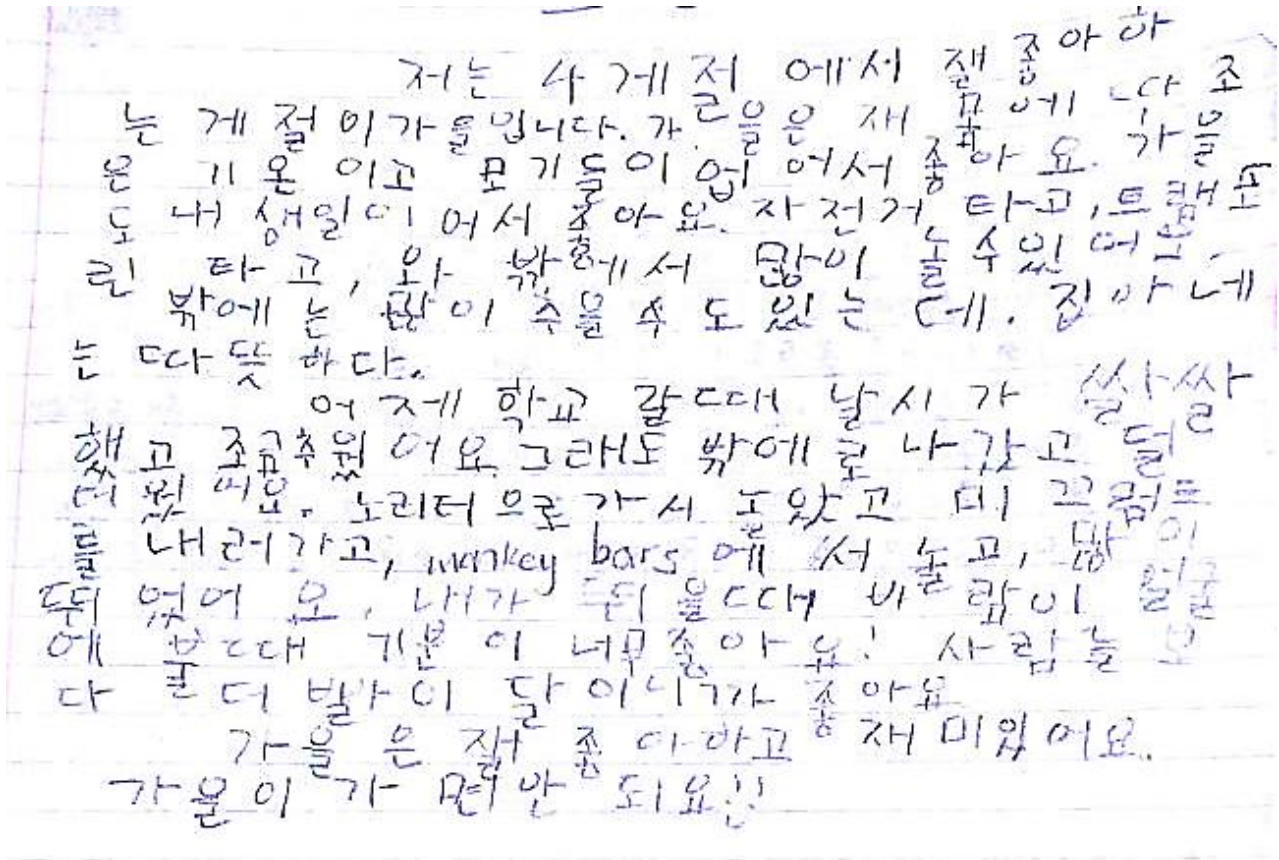 저는 사게절 에서 잴 좋아하
는 게절이가을입니다. 가을은 재 품에 다 조
은 기온이고 모기들이 업어서 좋아요. 가을
도 내 생일이어서 좋아요. 자전거 타고, 트램포
린 타고, 와 밖에서 많이 놀 수있어요.
밖에는 많이 추울 수도 있는데. 집아네
는 따뜻하다.
어제 학교 갈때 날시가 쌀쌀
했고 조금추웠어요 그래도 밖에로 나갔고 덜
더웠어요. 노리터으로 가서 놀았고 미끄럼트
를 내려가고, monkey bars에 서 놀고, 많이
뛰었어요, 내가 뛰을때 바람이 얼굴
에 불때 기분이 너무좋아요! 사람들 보
다 더 빨이 달이니까 좋아요
가을은 잴 좋아하고 재미있어요.
가을이 가면안 되요!!